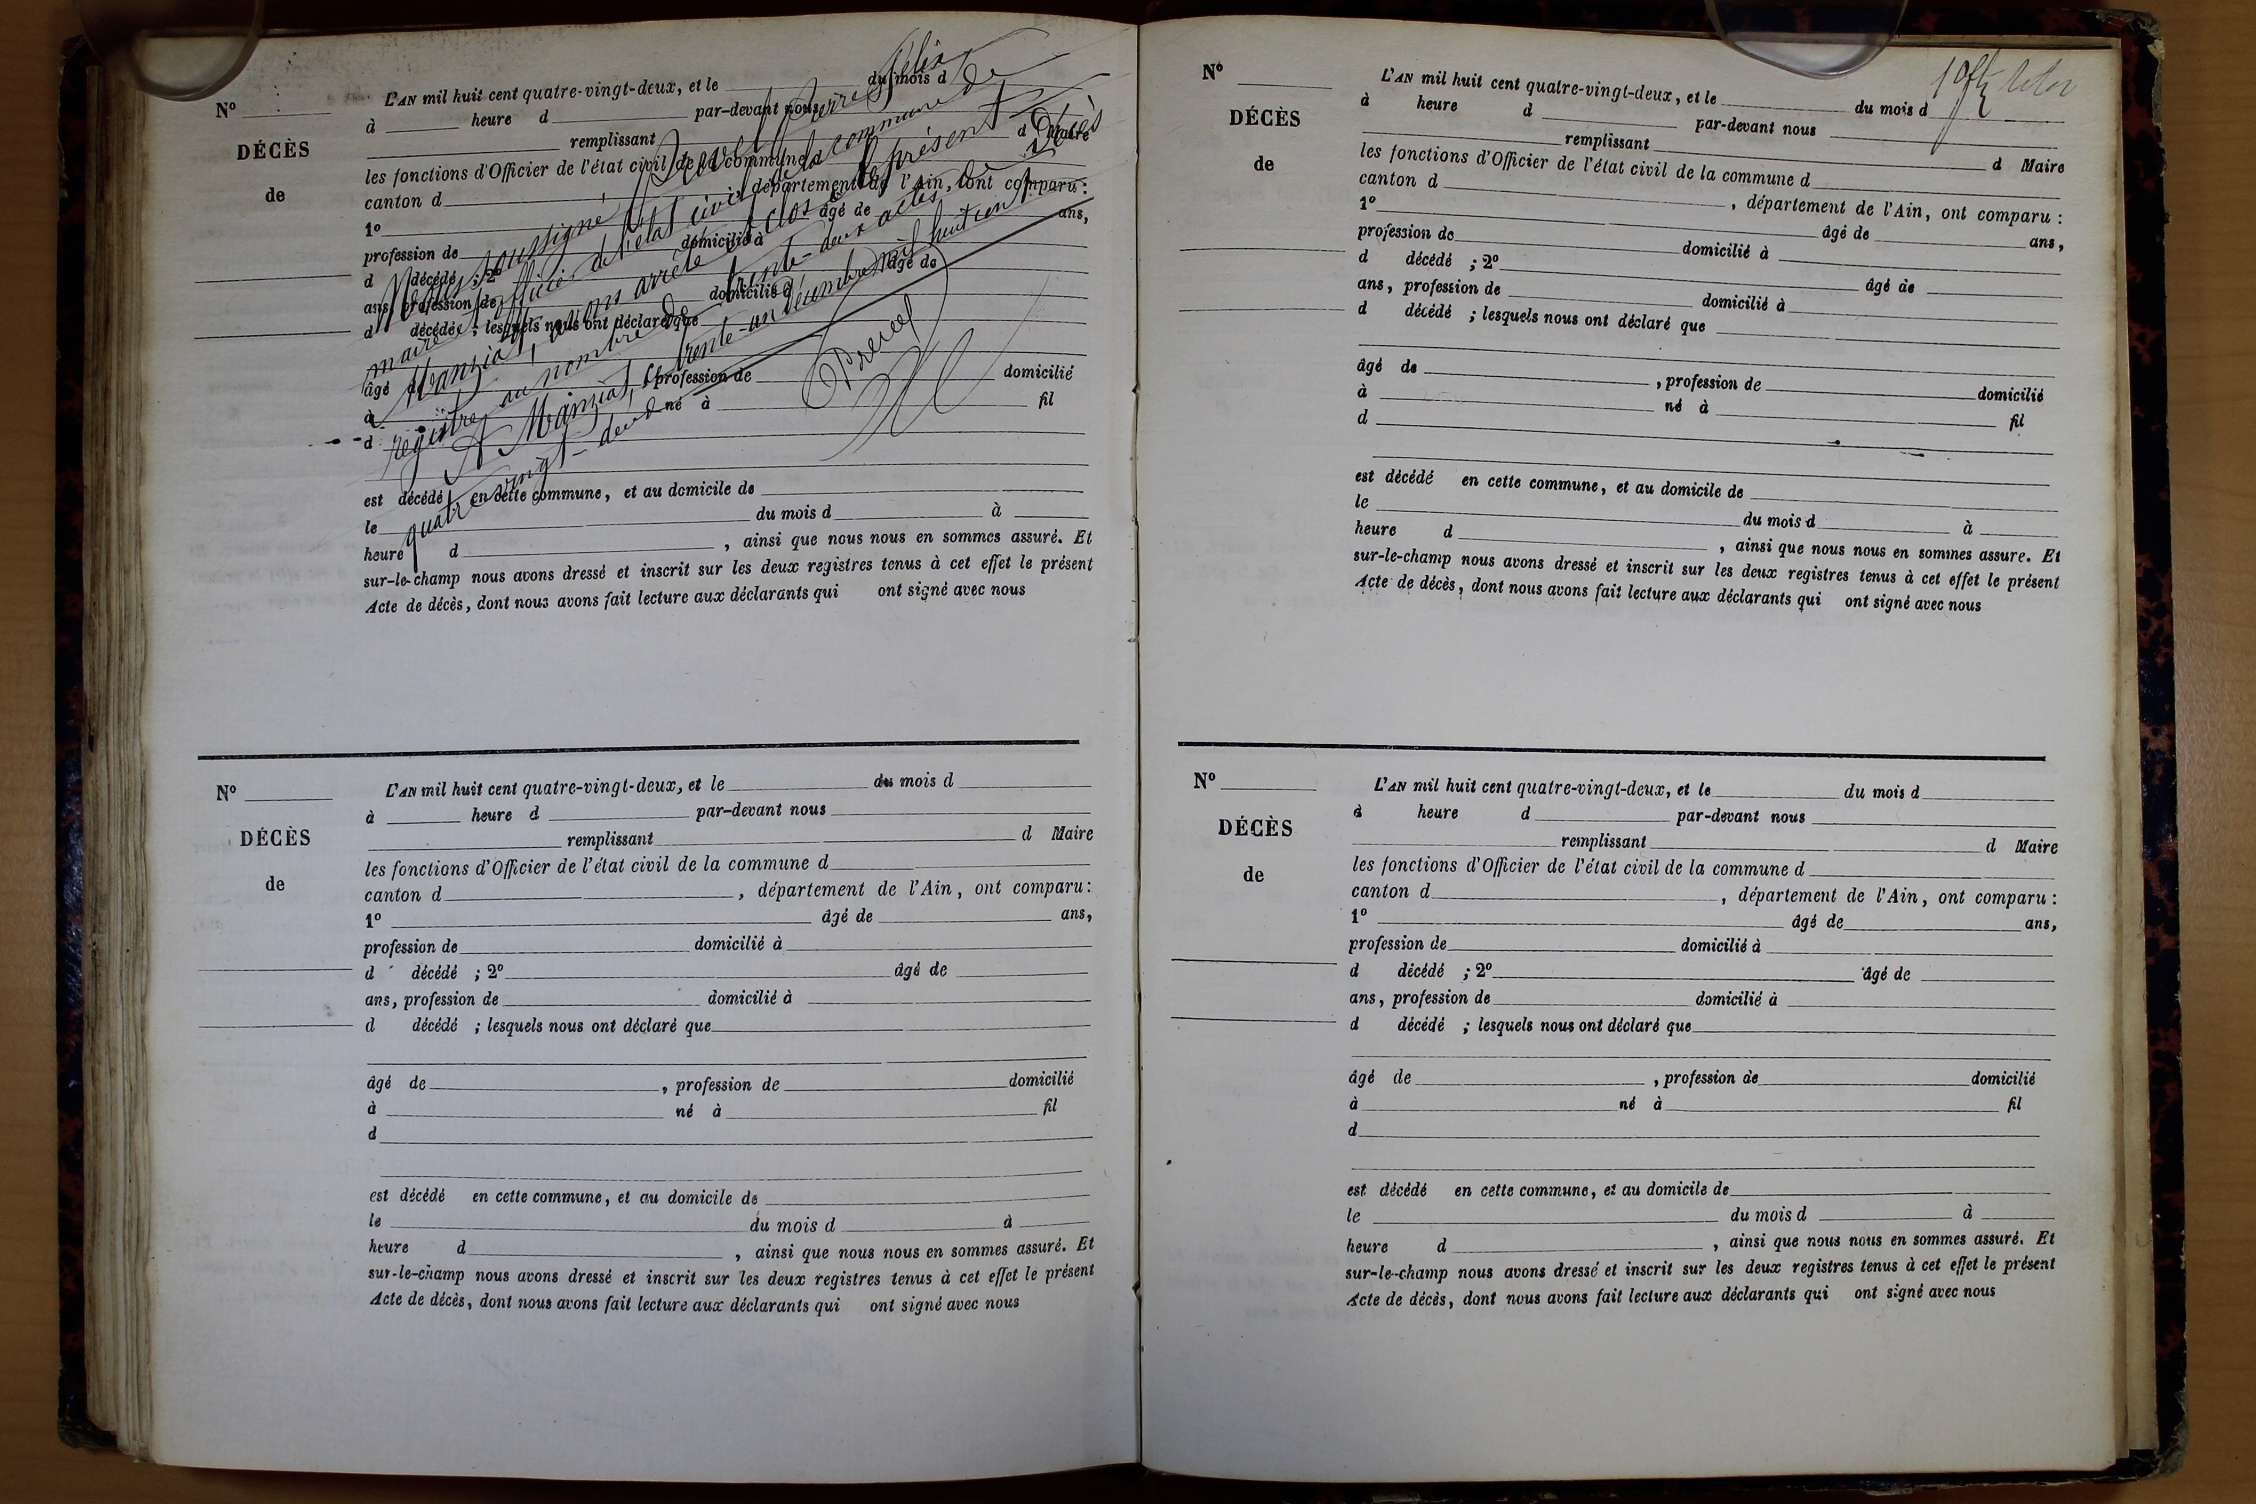 N°
DÉCÈS
de
L'AN mil huit cent quatre-vingt-deux, et le du mois d
à heure d par-devant nous
remplissant d Maire
les fonctions d'Officier de l'état civil de la commune d
canton d , département de l'Ain, ont comparu :
1° âgé de ans,
profession de domicilié à
d décédé ; 2° âgé de
ans, profession de domicilié à
d décédé ; lesquels nous ont déclaré que
âgé d , profession de domicilié
à né à fil
d
est décédé en cette commune, et au domicile de
le du mois d à
heure d , ainsi que nous nous en sommes assuré. Et
sur-le-champ nous avons dressé et inscrit sur les deux registres tenus à cet effet le présent
Acte de décès, dont nous avons fait lecture aux déclarants qui ont signé avec nous
Nous soussigné Pierre Félix
maire officier de l'état civil de la commune de
Manziat, avons arrêté et clos le présent
registre au nombre de trente-deux actes de Décès
A Manziat, trente-un décembre mil huit cent
quatre vingt-deux
N°
DÉCÈS
de
L'AN mil huit cent quatre-vingt-deux, et le du mois d
à heure d par-devant nous
remplissant d Maire
les fonctions d'Officier de l'état civil de la commune d
canton d , département de l'Ain, ont comparu:
1° âgé de ans,
profession de domicilié à
d décédé ; 2° âgé de
ans, profession de domicilié à
d décédé ; lesquels nous ont déclaré que
âgé de , profession de domicilié
à né à fil
d
est décédé en cette commune, et au domicile de
le du mois d à
heure d , ainsi que nous nous en sommes assuré. Et
sur-le-champ nous avons dressé et inscrit sur les deux registres tenus à cet effet le présent
Acte de décès, dont nous avons fait lecture aux déclarants qui ont signé avec nous
N°
DÉCÈS
de
L'AN mil huit cent quatre-vingt-deux, et le du mois d
à heure d par-devant nous
remplissant d Maire
les fonctions d'Officier de l'état civil de la commune d
canton d , département de l'Ain, ont comparu :
1° âgé de ans,
profession de domicilié à
d décédé ; 2° âgé de
ans, profession de domicilié à
d décédé ; lesquels nous ont déclaré que
âgé de , profession de domicilié
à né à fil
d
est décédé en cette commune, et au domicile de
le du mois d à
heure d , ainsi que nous nous en sommes assure. Et
sur-le-champ nous avons dressé et inscrit sur les deux registres tenus à cet effet le présent
Acte de décès, dont nous avons fait lecture aux déclarants qui ont signé avec nous
N°
DÉCÈS
de
L'AN mil huit cent quatre-vingt-deux, et le du mois d
à heure d par-devant nous
remplissant d Maire
les fonctions d'Officier de l'état civil de la commune d
canton d , département de l'Ain, ont comparu :
1° âgé de ans,
profession de domicilié à
d décédé ; 2° âgé de
ans, profession de domicilié à
d décédé ; lesquels nous ont déclaré que
âgé de , profession de domicilié
à né à fil
d
est décédé en cette commune, et au domicile de
le du mois d à
heure d , ainsi que nous nous en sommes assuré. Et
sur-le-champ nous avons dressé et inscrit sur les deux registres tenus à cet effet le présent
Acte de décès, dont nous avons fait lecture aux déclarants qui ont signé avec nous